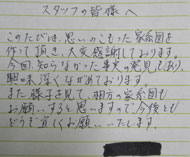 スタッフの皆様へ
このたびは、思いのこもった家系図を
作って頂き、大変感謝しております。
今回、知らなかった事実の発見もあり、
興味深くながめております。
また様子を見て、相方の家系図も
お願いすると思いますので今後とも
どうぞ宜しくお願いいたします。